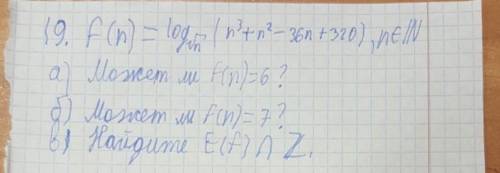 19. f(n) = log_√n (n³+n²-36n+320), n∈ℕ
а) Может ли f(n)=6?
б) Может ли f(n)=7?
в) Найдите E(f)∩ℤ.